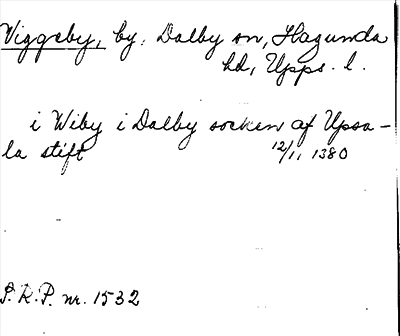 Viggeby, by. Dalby sn, Hagunda
hd, Upps. l.
i Wiby i Dalby socken af Upsa-
la stift 12/11 1380
S.R.P. nr. 1532